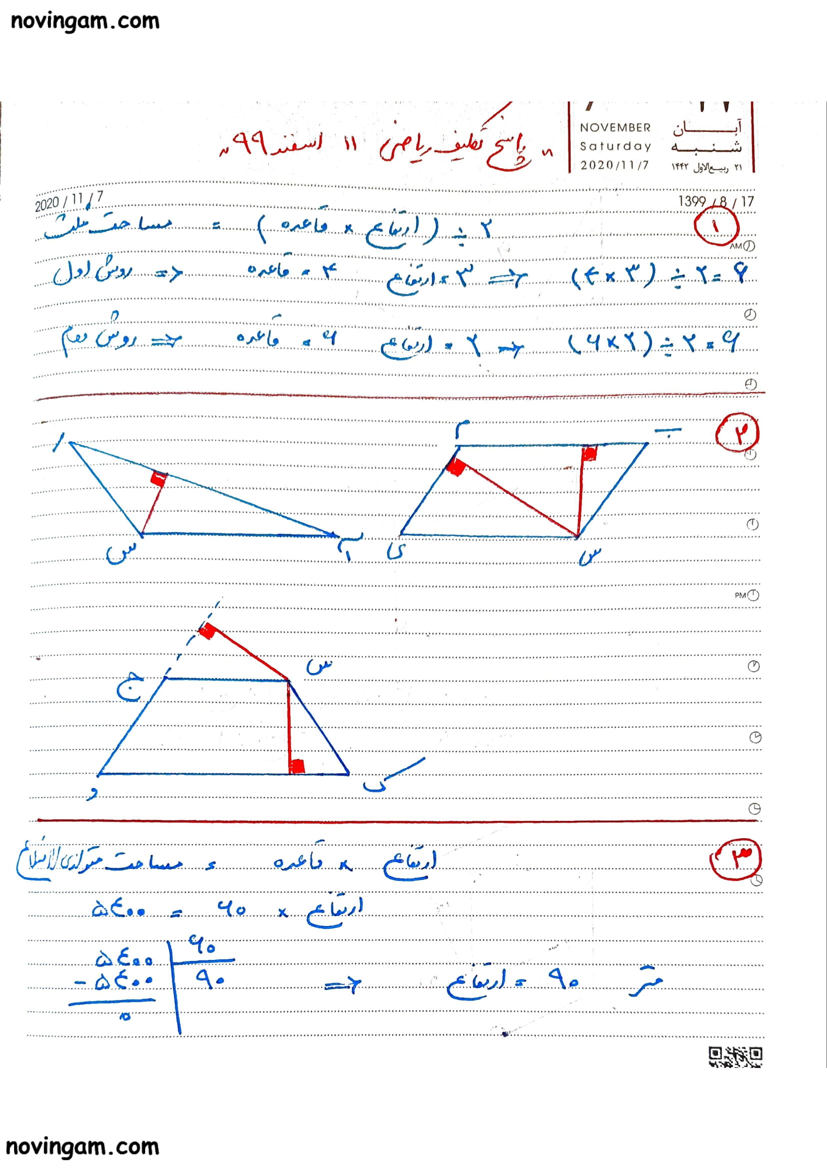 novingam.com
NOVEMBER
Saturday
2020/11/7
آبان
شنبه
۲۱ ربیع‌الاول ۱۴۴۲
" پاسخ تکلیف ریاضی ۱۱ اسفند ۹۹ "
2020/11/7
1399/8/17
۱
AM
مساحت مثلث = (قاعده × ارتفاع) ÷ ۲
روش اول => قاعده = ۴ ارتفاع = ۳ => (۴×۳) ÷ ۲ = ۶
روش دوم => قاعده = ۶ ارتفاع = ۲ => (۶×۲) ÷ ۲ = ۶
۲
م
س
ی
س
PM
س
ج
د
ک
۳
مساحت متوازی الاضلاع = قاعده × ارتفاع
۵۴۰۰ = ۶۰ × ارتفاع
۵۴۰۰ ۶۰
- ۵۴۰۰ ۹۰
۰
=> ارتفاع = ۹۰ متر
novingam.com